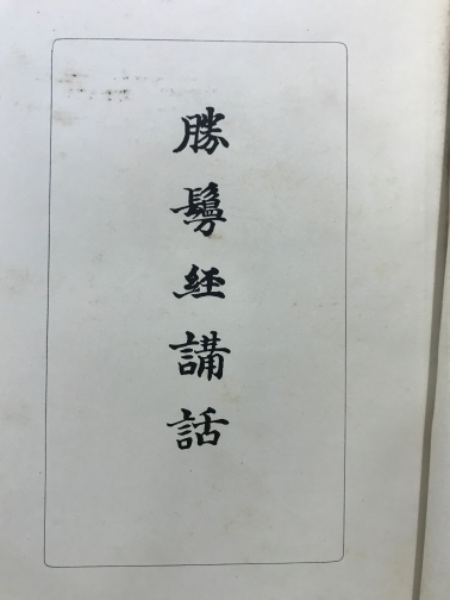 勝鬘経講話